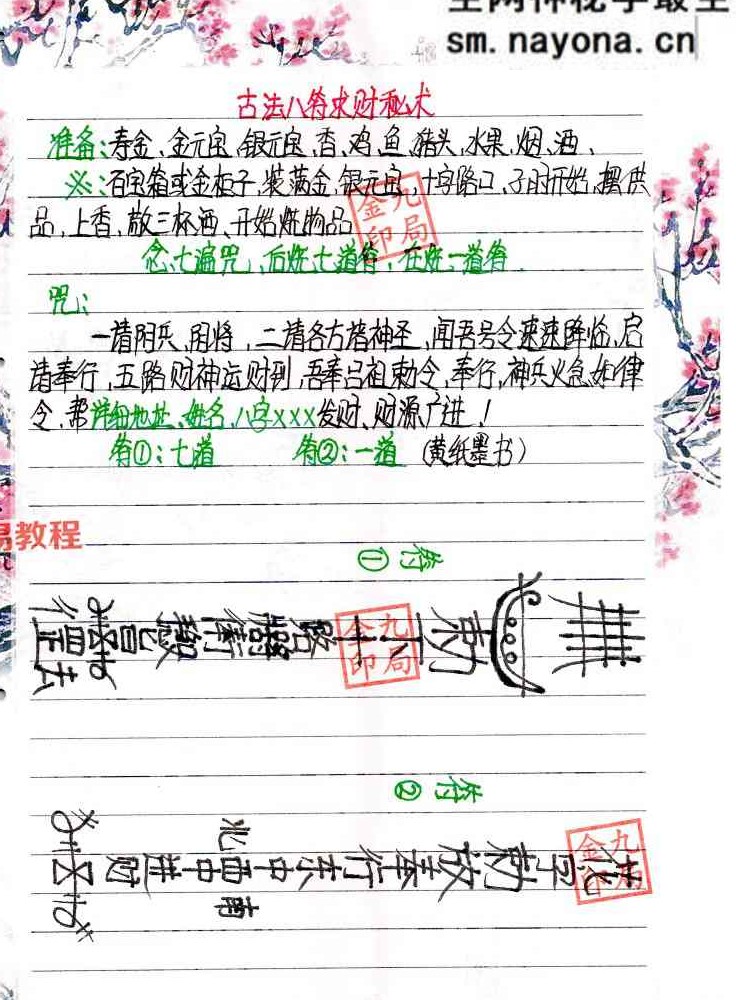 sm.nayona.cn
古法八符求财秘术
准备:寿金、金元宝、银元宝、香、鸡、鱼、猪头、水果、烟、酒、
※:百宝箱或金柜子,装满金、银元宝,十字路口,子时开始,摆供
品,上香,敬三杯酒、开始烧物品
念七遍咒,后烧七道符,在烧一道符.
咒:
一请阴兵、阴将,二请各方诸神圣,闻吾号令速速降临,启
请奉行,五路财神运财到,吾奉吕祖勅令,奉行,神兵火急如律
令,帮详细地址、姓名、八字xxx发财、财源广进!
符①:七道 符②:一道 (黄纸墨书)
易教程
符①
九局金印
符②
九局金印
北
南